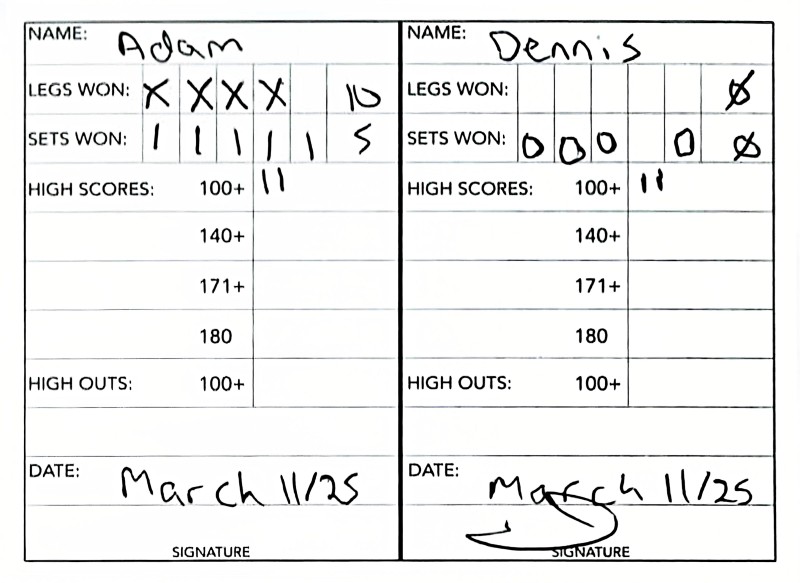 NAME: Adam
LEGS WON: X X X X 10
SETS WON: 1 1 1 1 1 5
HIGH SCORES: 100+ 11
140+
171+
180
HIGH OUTS: 100+
DATE: March 11/25
SIGNATURE
NAME: Dennis
LEGS WON: Ø
SETS WON: 0 0 0 0 Ø
HIGH SCORES: 100+ 11
140+
171+
180
HIGH OUTS: 100+
DATE: March 11/25
SIGNATURE